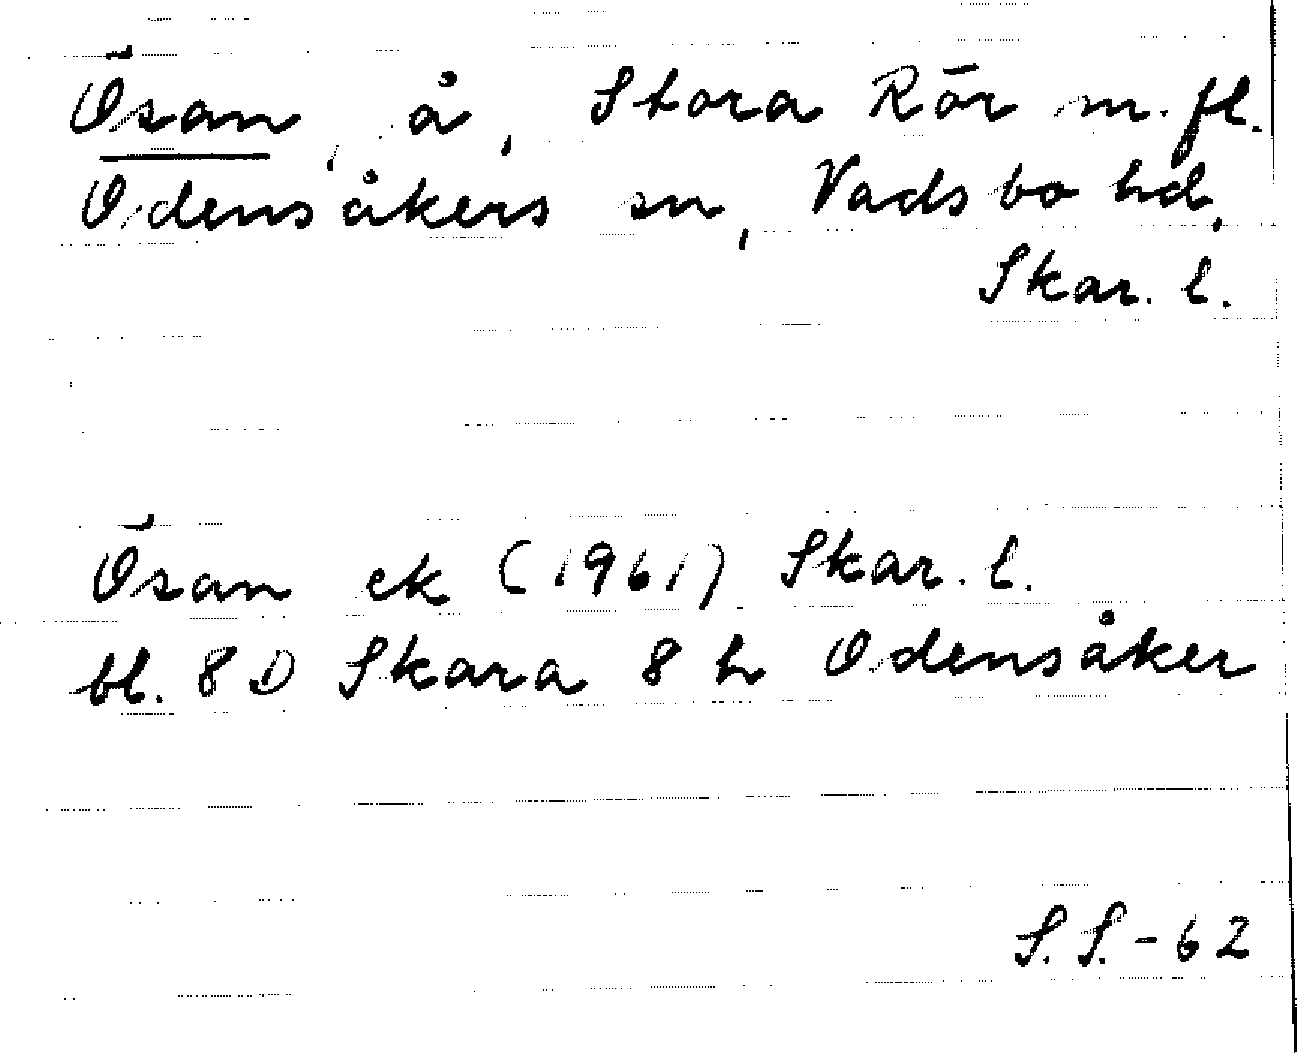 Ösan, å, Stora Rör m.fl.
Odensåkers sn, Vadsbo hd,
Skar. l.
Ösan ek (1961) Skar. l.
bl. 8 D Skara 8 h Odensåker
S.S. - 62